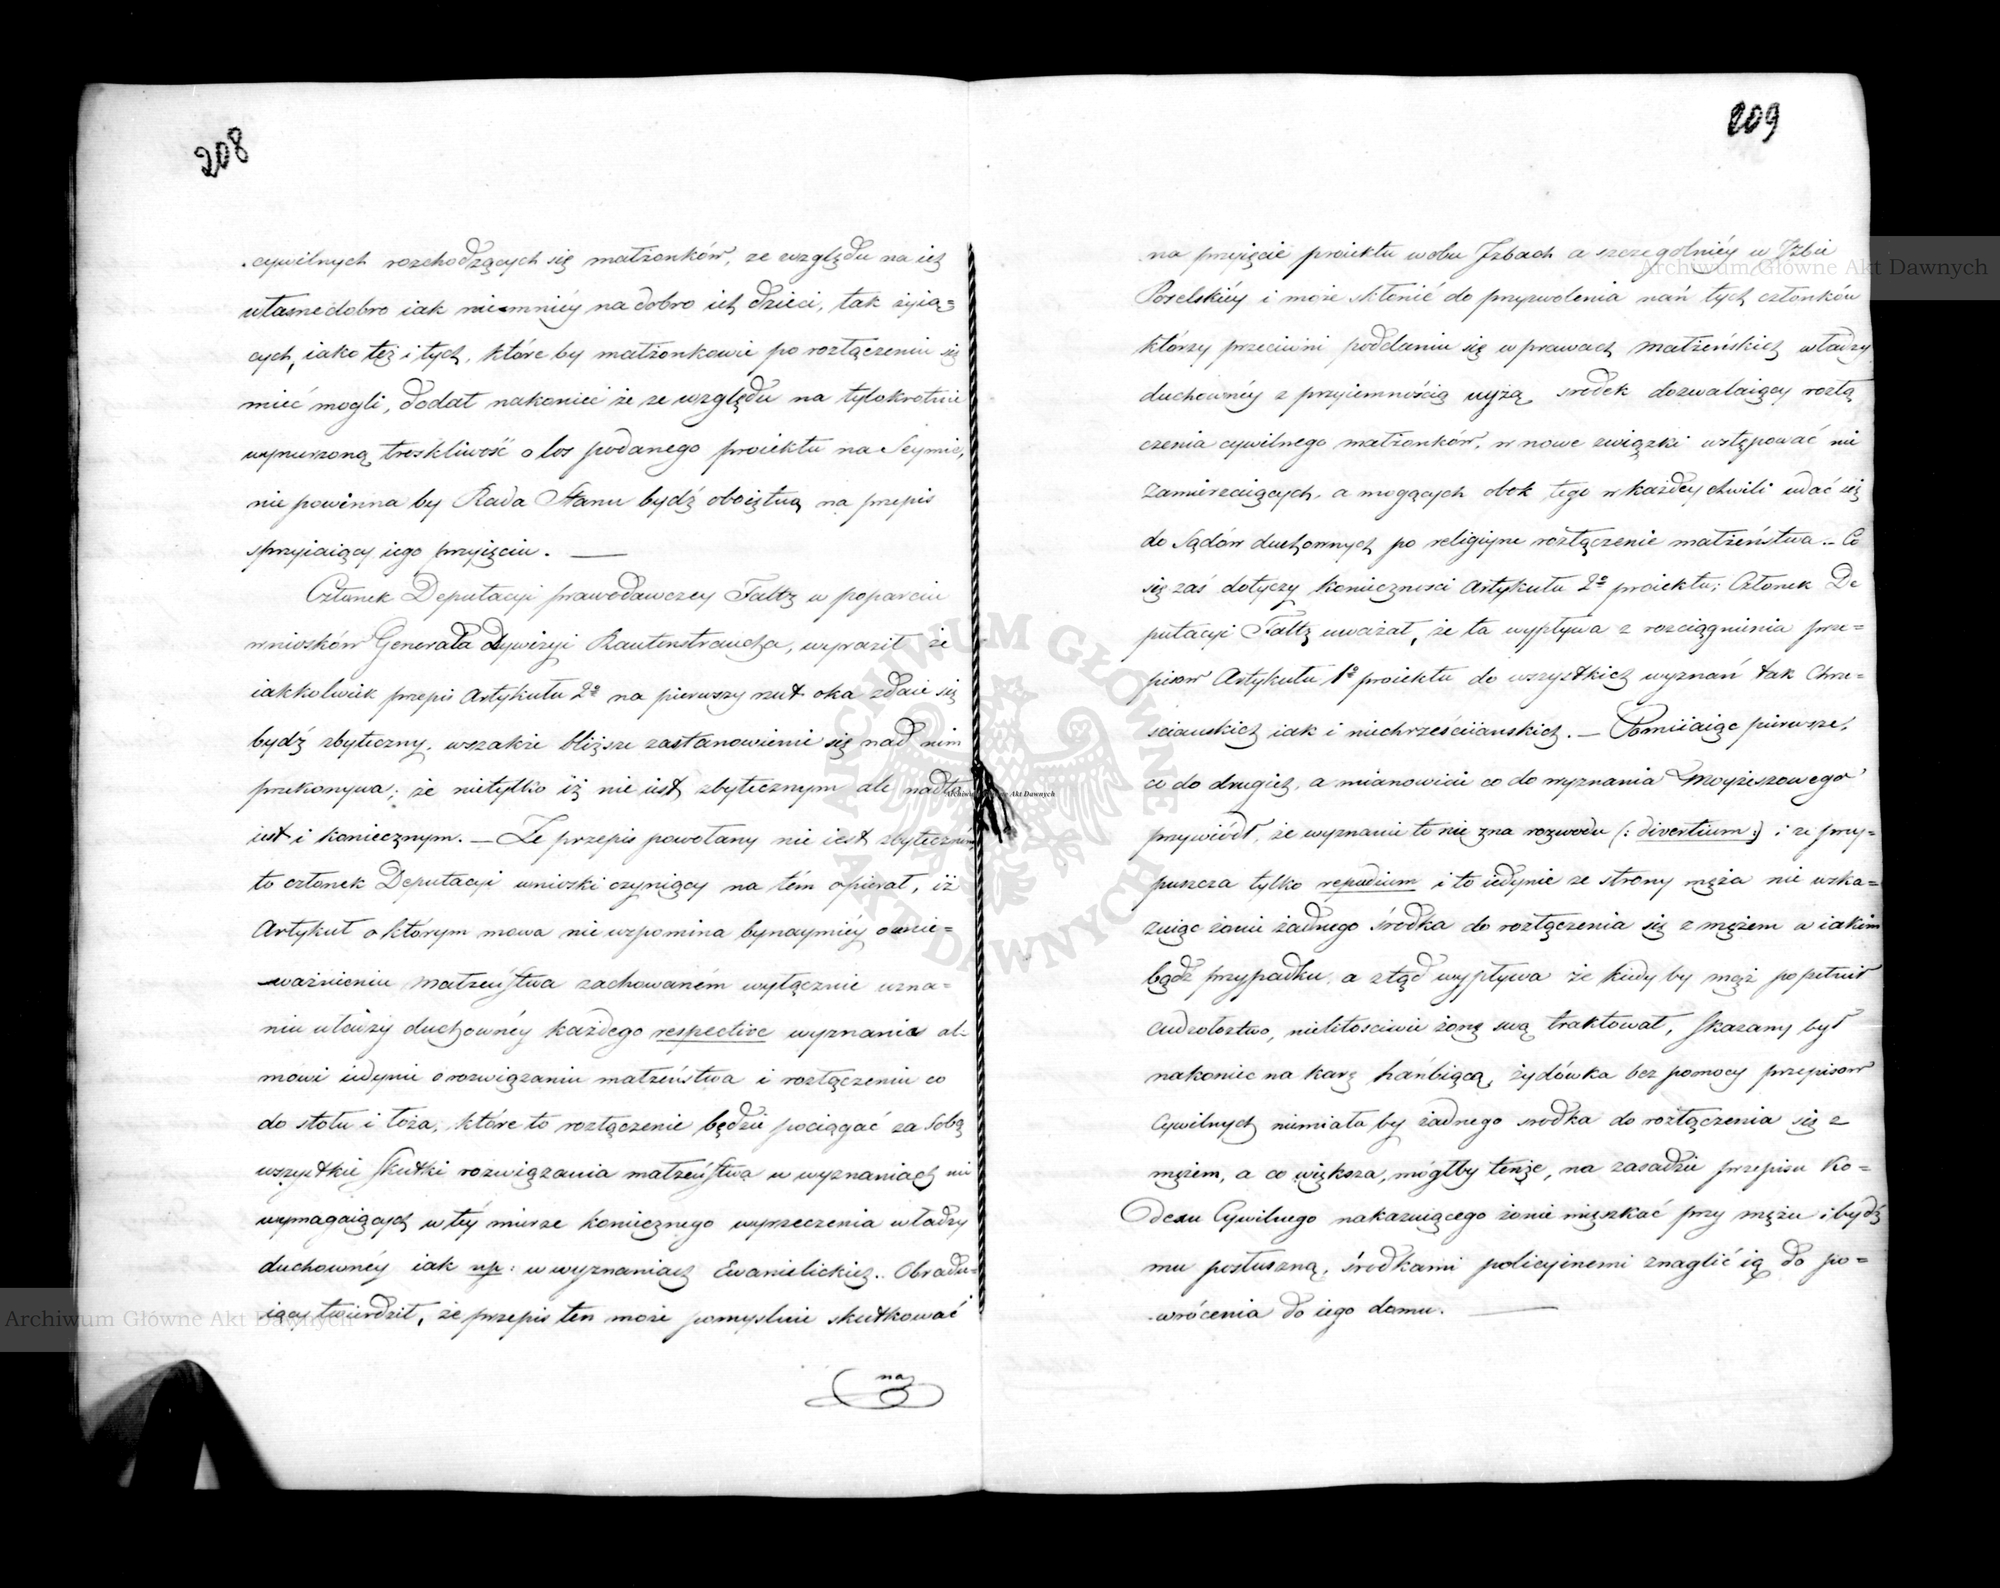 208
cywilnych rozchodzących się małżonków, ze względu na ich
własne dobro iak niemniéy na dobro ich dzieci, tak żyią=
cych, iako też i tych, które by małżonkowie po rozłączeniu się
mieć mogli, dodał nakoniec że ze względu na tylokrotnie
wynurzoną troskliwość o los podanego proiektu na Seymie,
nie powinna by Rada Stanu bydź oboiętną na przepis
sprzyiaiący iego przyięciu. —
Członek Deputacyi prawodawczey Faltz w poparciu
wniosków Generała dywizyi Rautenstraucha, wyraził że
iakkolwiek przepis Artykułu 2º na pierwszy rzut oka zdaie się
bydź zbyteczny, wszakże bliższe zastanowienie się nad nim
przekonywa; że nietylko iż nie iest zbytecznym ale nadto
iest i koniecznym. — Że przepis powołany nie iest zbytecznym
to członek Deputacyi wnioski czyniący na tém opierał, iż
Artykuł o którym mowa nie wspomina bynaymniéy o unie=
ważnieniu małżeństwa zachowaném wyłącznie uzna=
niu władzy duchownéy każdego respective wyznania al-
mowi iedynie o rozwiązaniu małżeństwa i rozłączeniu co
do stołu i łoża, które to rozłączenie będzie pociągać za sobą
wszystkie skutki rozwiązania małżeństwa w wyznaniach nie
wymagaiących w téy mierze koniecznego wyrzeczenia władzy
duchownéy iak np: w wyznaniach Ewanielickich. Obradu=
iący twierdził, że przepis ten może pomyślnie skutkować
na
209
na przyięcie proiektu w obu Izbach a szczególniéy w Izbie
Poselskiéy i może skłonić do przyzwolenia nań tych członków
którzy przeciwni poddaniu się w prawach małżeńskich władzy
duchownéy z przyiemnością uyżą środek dozwalaiący rozłą
czenia cywilnego małżonków, w nowe związki wstępować nie
zamierzaiących, a mogących obok tego w każdey chwili udać się
do Sądów duchownych po religiyne rozłączenie małżeństwa. – Co
się zaś dotyczy konieczności Artykułu 2º proiektu; Członek De
putacyi Faltz uważał, że ta wypływa z rozciągnienia prze=
pisow Artykułu 1º proiektu do wszystkich wyznań tak Chrze=
sciańskich iak i niechrześciiańskich. — Pomiiaiąc pierwsze,
co do drugich, a mianowicie co do wyznania Moyżeszowego
przywiódł, że wyznanie to nie zna rozwodu (: divertium :) i że przy=
puszcza tylko repudium i to iedynie ze strony męża nie wska=
zuiąc żonie żadnego środka do rozłączenia się z mężem w iakim
bądź przypadku, a ztąd wypływa że kiedy by mąż popełnił
cudzołoztwo, nielitościwie żonę swą traktował, skazany był
nakoniec na karę hańbiącą, żydówka bez pomocy przepisow
Cywilnych niemiała by żadnego srodka do rozłączenia się z
mężem, a co większa, mógłby tenże, na zasadzie przepisu Ko=
dexu Cywilnego nakazuiącego żonie mięszkać przy mężu i bydź
mu posłuszną, środkami policyinemi znaglić ią do po=
wrócenia do iego domu. —
Archiwum Główne Akt Dawnych
Archiwum Główne Akt Dawnych
ARCHIWUM GŁÓWNE AKT DAWNYCH
Archiwum Główne Akt Dawnych